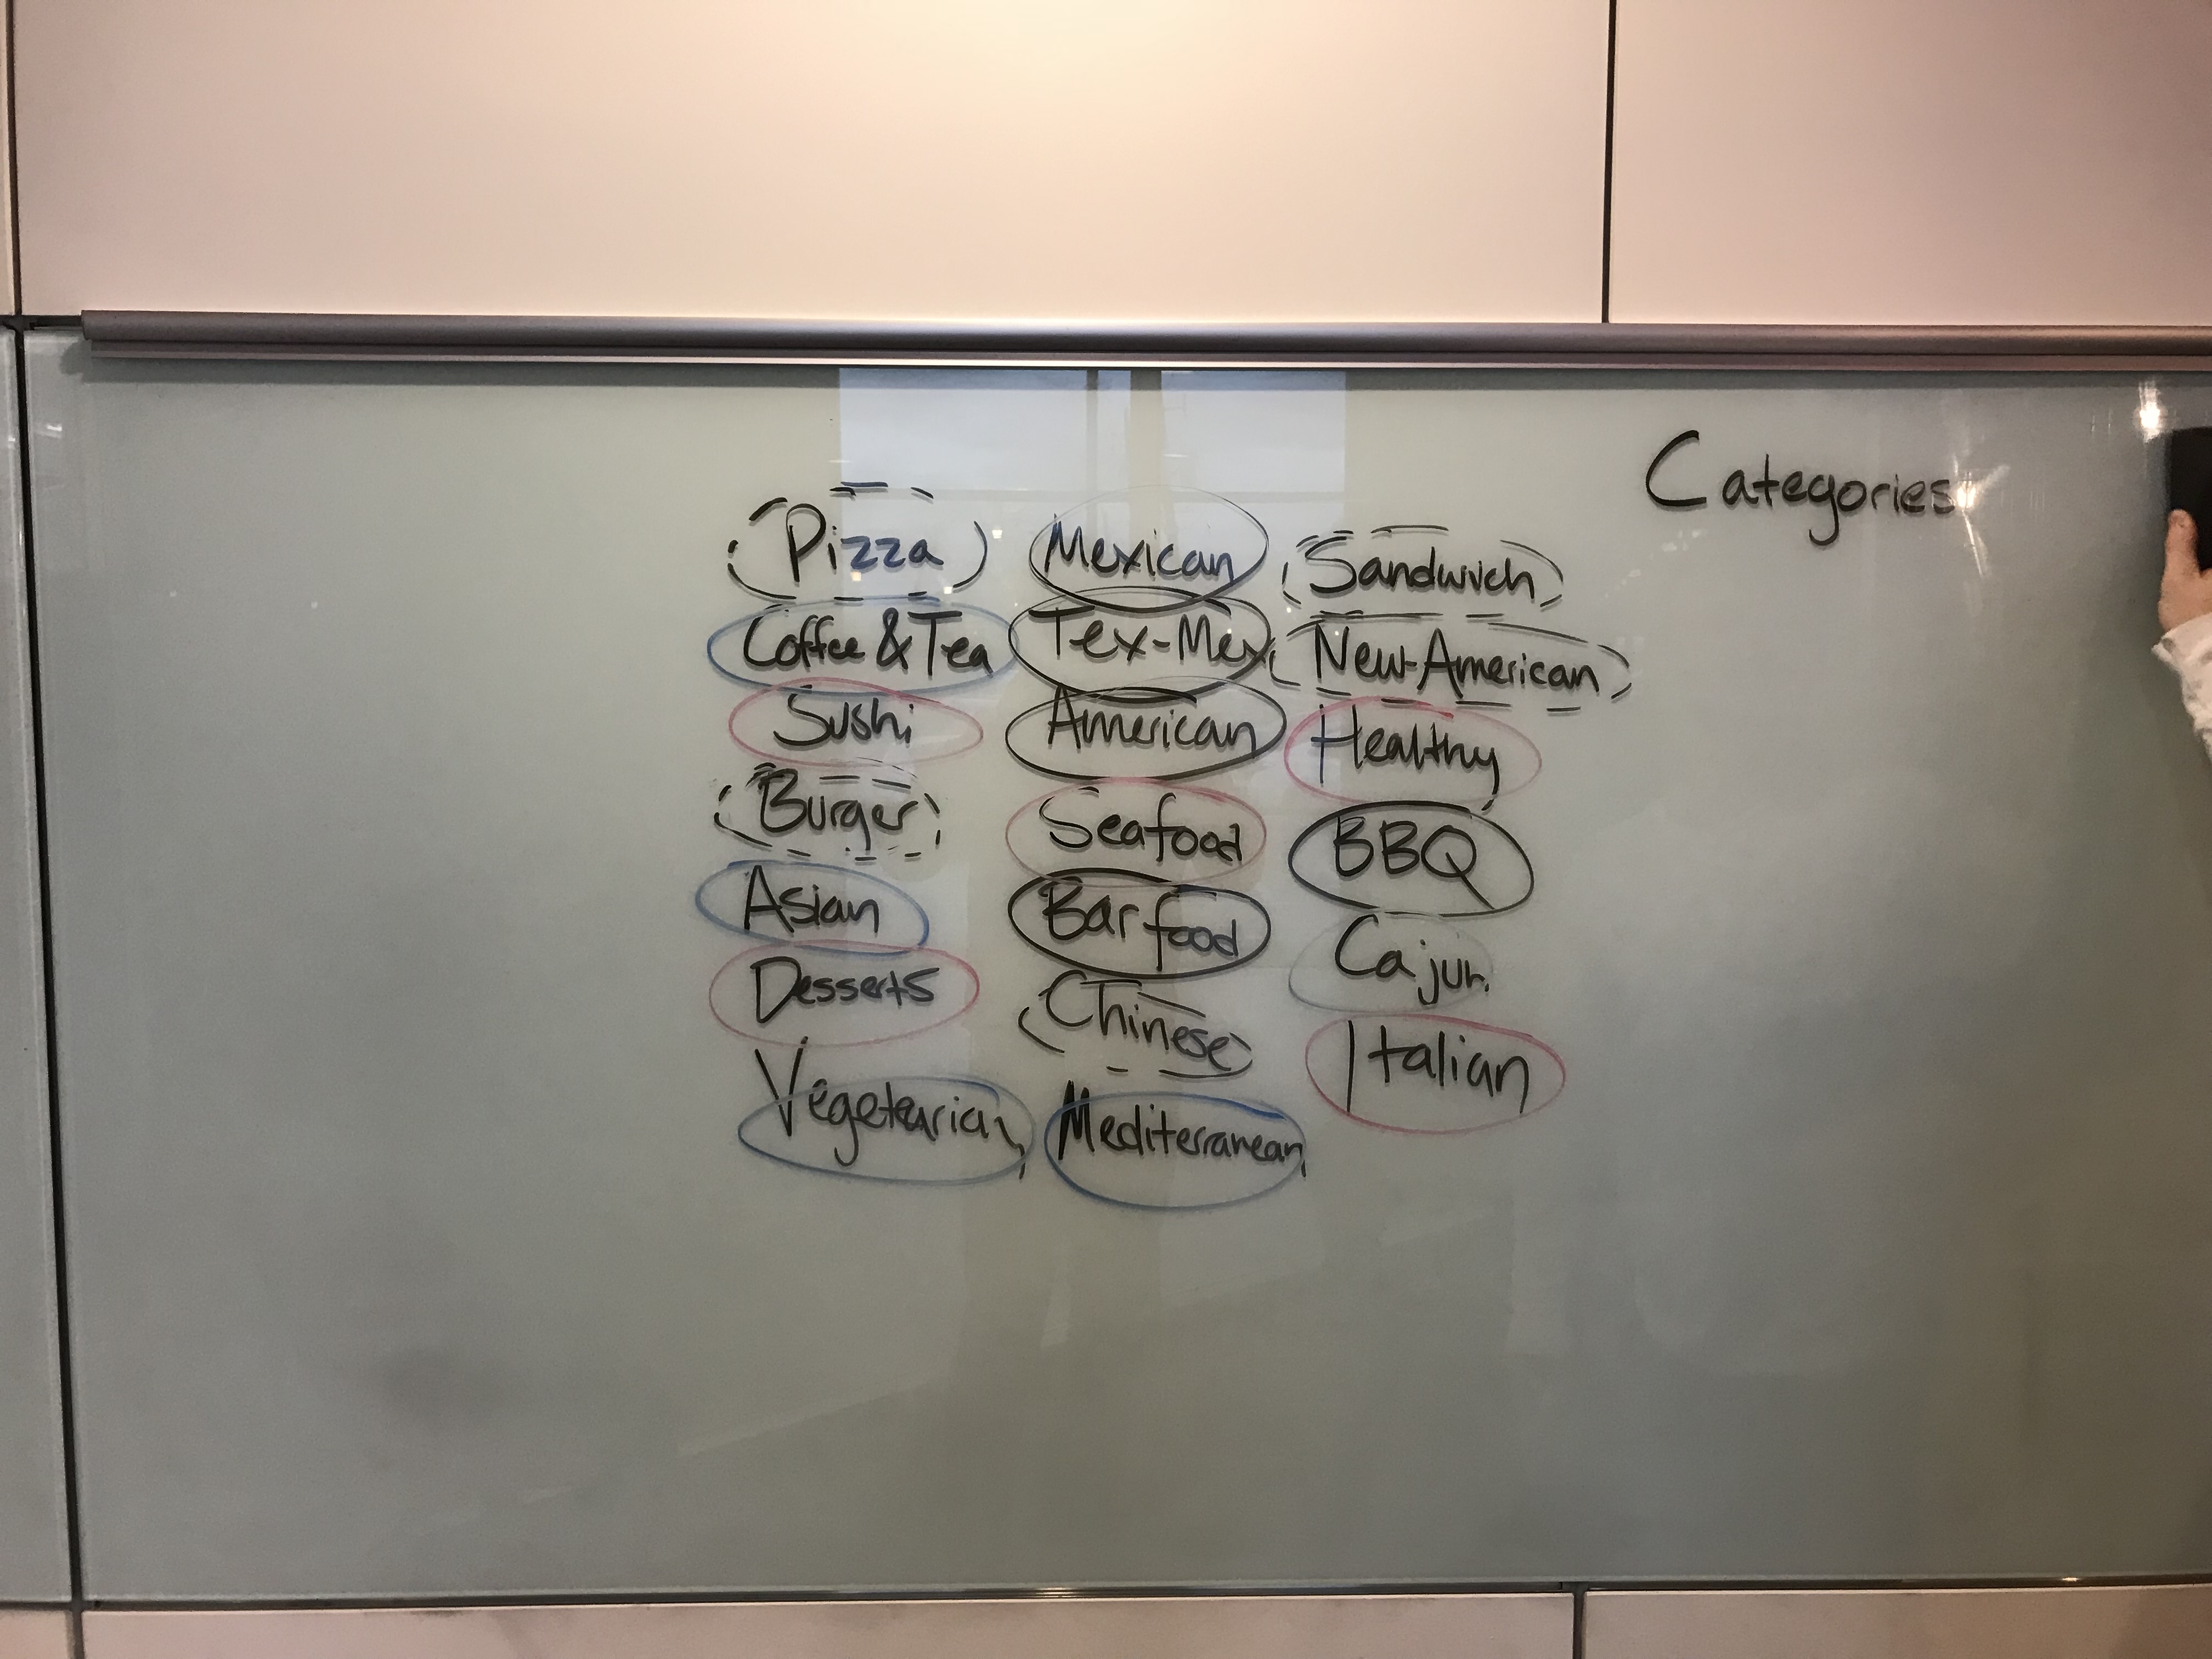 Categories
Pizza
Coffee & Tea
Sushi
Burger
Asian
Desserts
Vegetearian
Mexican
Tex-Mex
American
Seafood
Bar food
Chinese
Mediterranean
Sandwich
New-American
Healthy
BBQ
Cajun
Italian